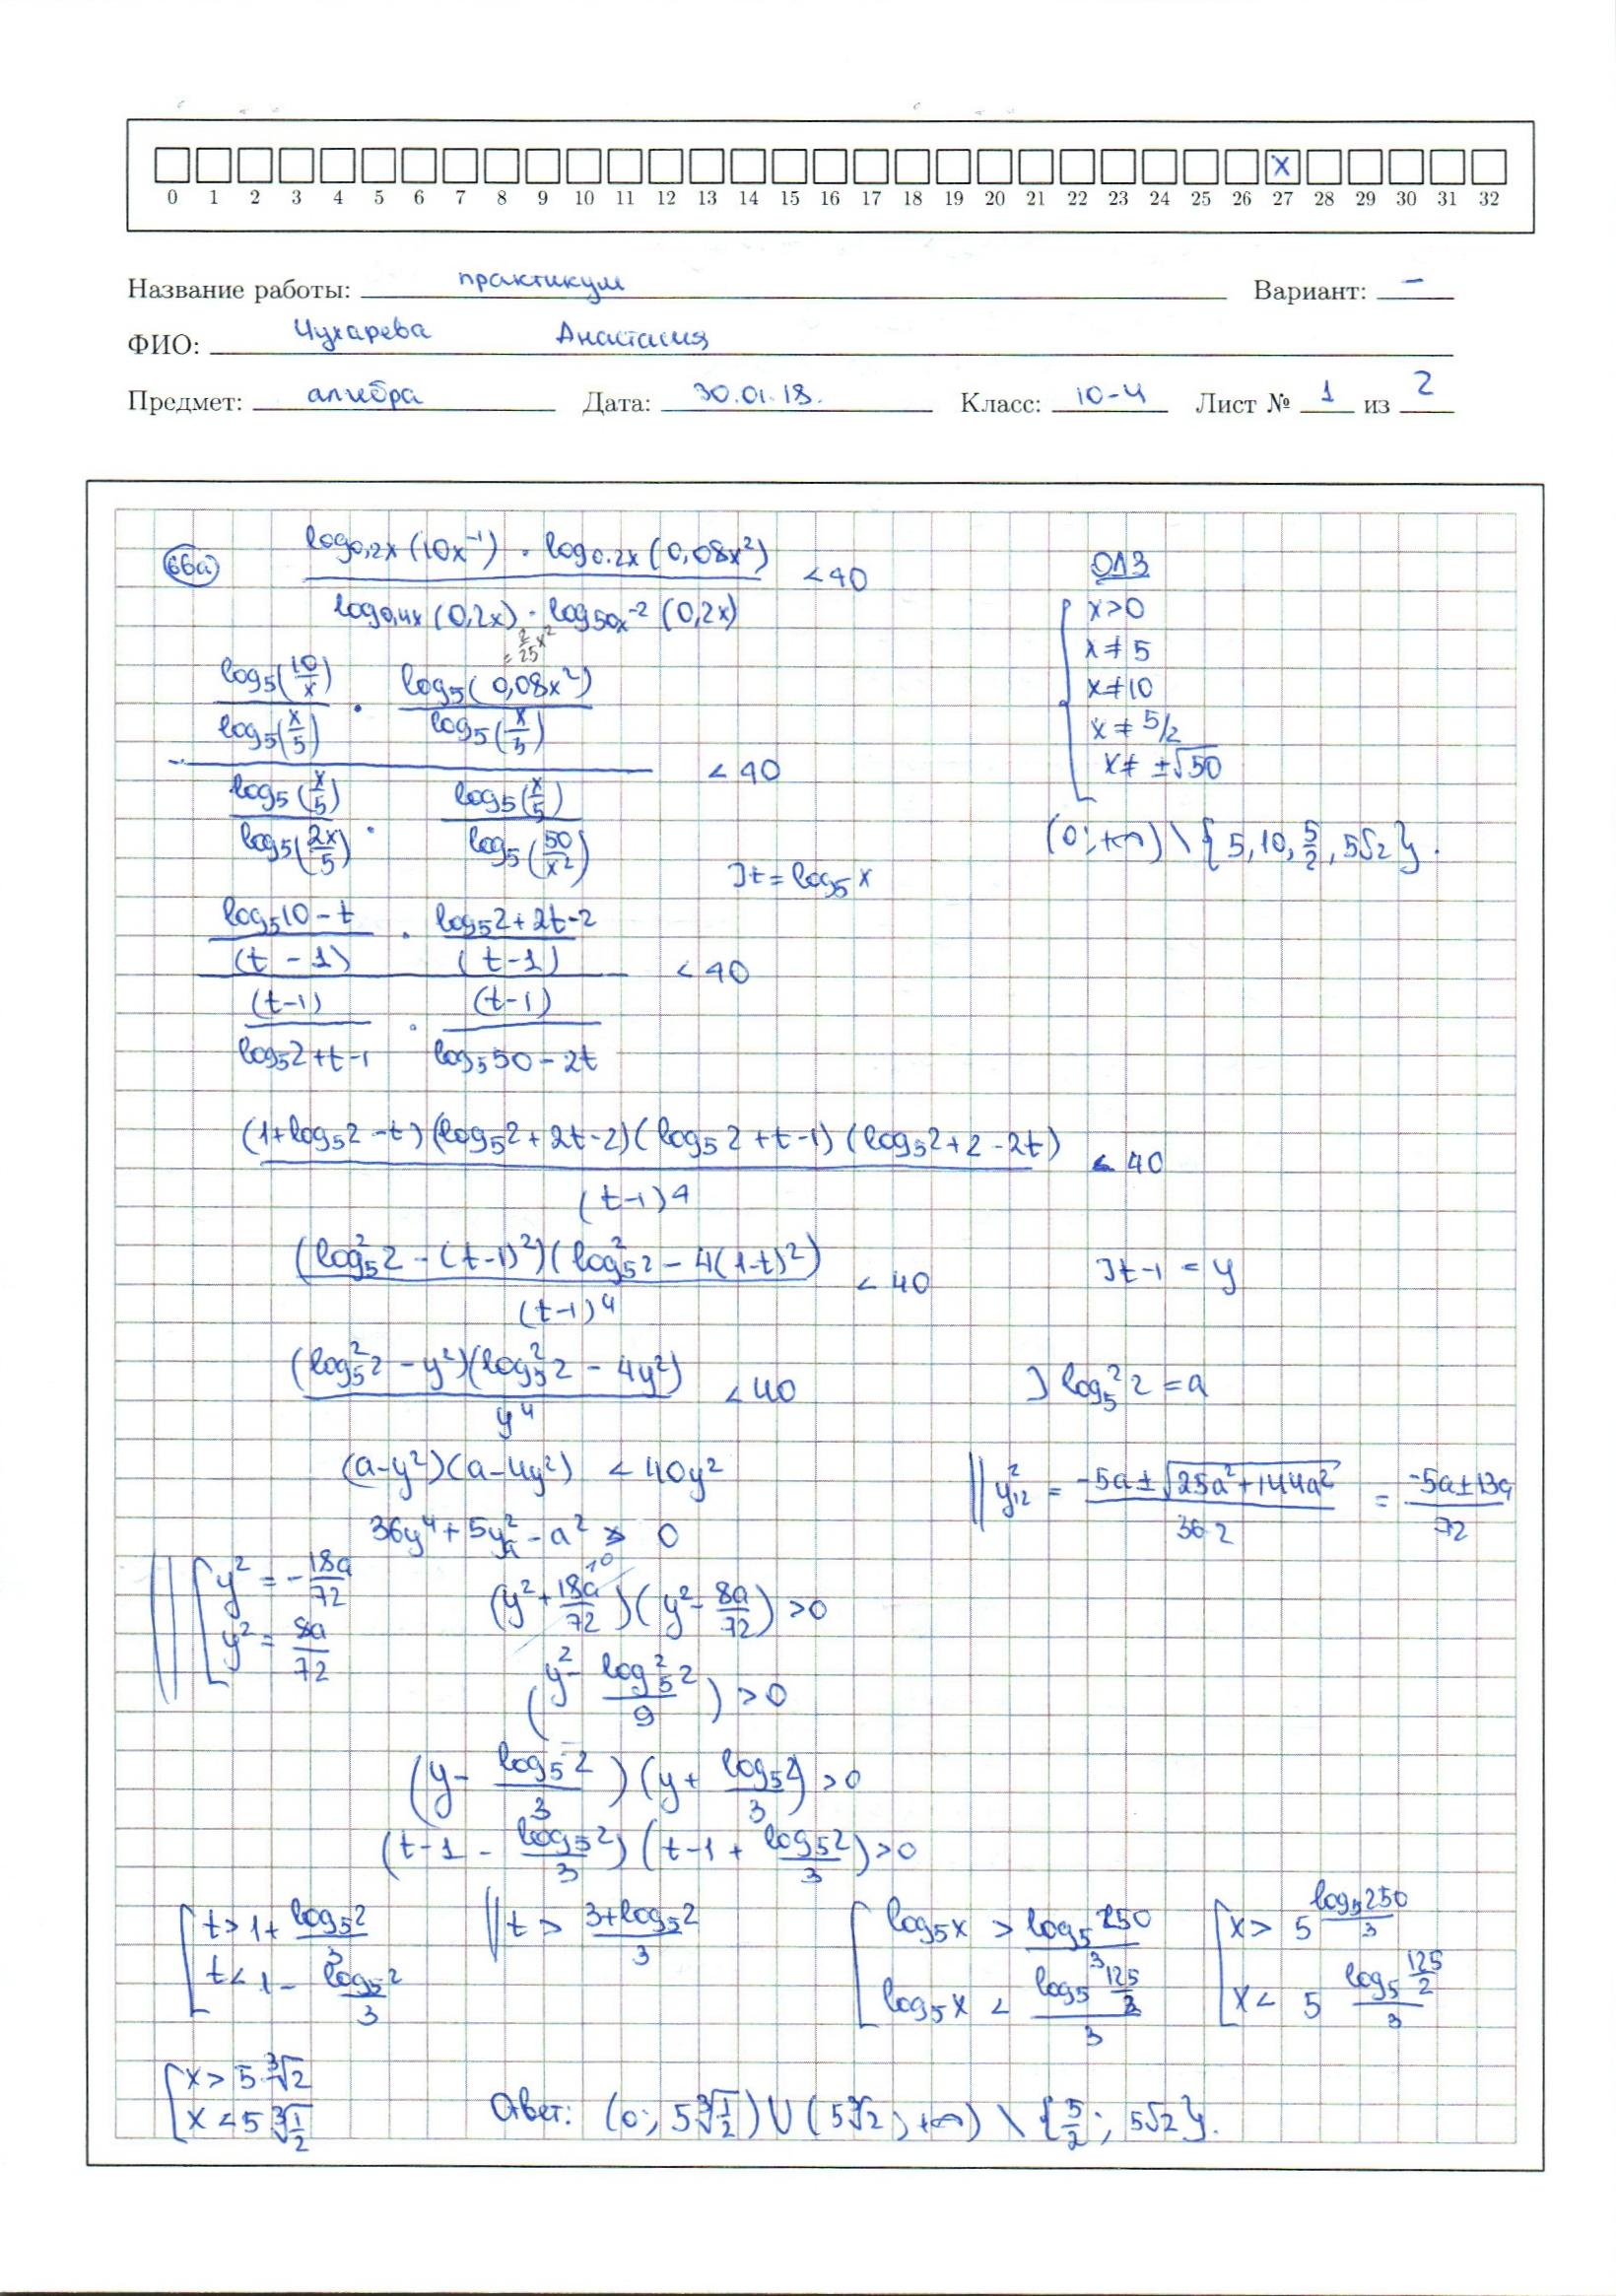 X
0 1 2 3 4 5 6 7 8 9 10 11 12 13 14 15 16 17 18 19 20 21 22 23 24 25 26 27 28 29 30 31 32
Название работы: практикум Вариант: –
ФИО: Чухарева Анастасия
Предмет: алгебра Дата: 30.01.18. Класс: 10-4 Лист № 1 из 2
66а) (log₀,₂ₓ(10x⁻¹) · log₀.₂ₓ(0,08x²)) / (log₀,₄ₓ(0,2x) · log₅₀ₓ⁻²(0,2x)) < 40
ОДЗ
x>0
x≠5
x≠10
x≠5/2
x≠±√50
(0;+∞) \ {5, 10, 5/2, 5√2}.
= 2/25 x²
(log₅(10/x) / log₅(x/5) · log₅(0,08x²) / log₅(x/5)) / (log₅(x/5) / log₅(2x/5) · log₅(x/5) / log₅(50/x²)) < 40
] t = log₅x
((log₅10-t)/(t-1) · (log₅2+2t-2)/(t-1)) / ((t-1)/(log₅2+t-1) · (t-1)/(log₅50-2t)) < 40
(1+log₅2-t)(log₅2+2t-2)(log₅2+t-1)(log₅2+2-2t) / (t-1)⁴ < 40
(log₅²2-(t-1)²)(log₅²2-4(1-t)²) / (t-1)⁴ < 40 ] t-1 = y
(log₅²2-y²)(log₅²2-4y²) / y⁴ < 40 ] log₅²2 = a
(a-y²)(a-4y²) < 40y²
|| y²₁₂ = (-5a±√(25a²+144a²)) / (36·2) = (-5a±13a) / 72
36y⁴+5y²a-a² > 0
|| [ y² = -18a/72
y² = 8a/72
(y²+18a/72)(y²-8a/72) > 0
(y² - log₅²2/9) > 0
(y - log₅2/3)(y + log₅2/3) > 0
(t-1 - log₅2/3)(t-1 + log₅2/3) > 0
[ t > 1 + log₅2/3
t < 1 - log₅2/3
|| t > (3+log₅2)/3
[ log₅x > log₅250/3
log₅x < log₅(125/2)/3
[ x > 5^(log₅250/3)
x < 5^(log₅(125/2)/3)
[ x > 5∛2
x < 5∛(1/2)
Ответ: (0; 5∛(1/2)) ∪ (5∛2; +∞) \ {5/2; 5√2}.